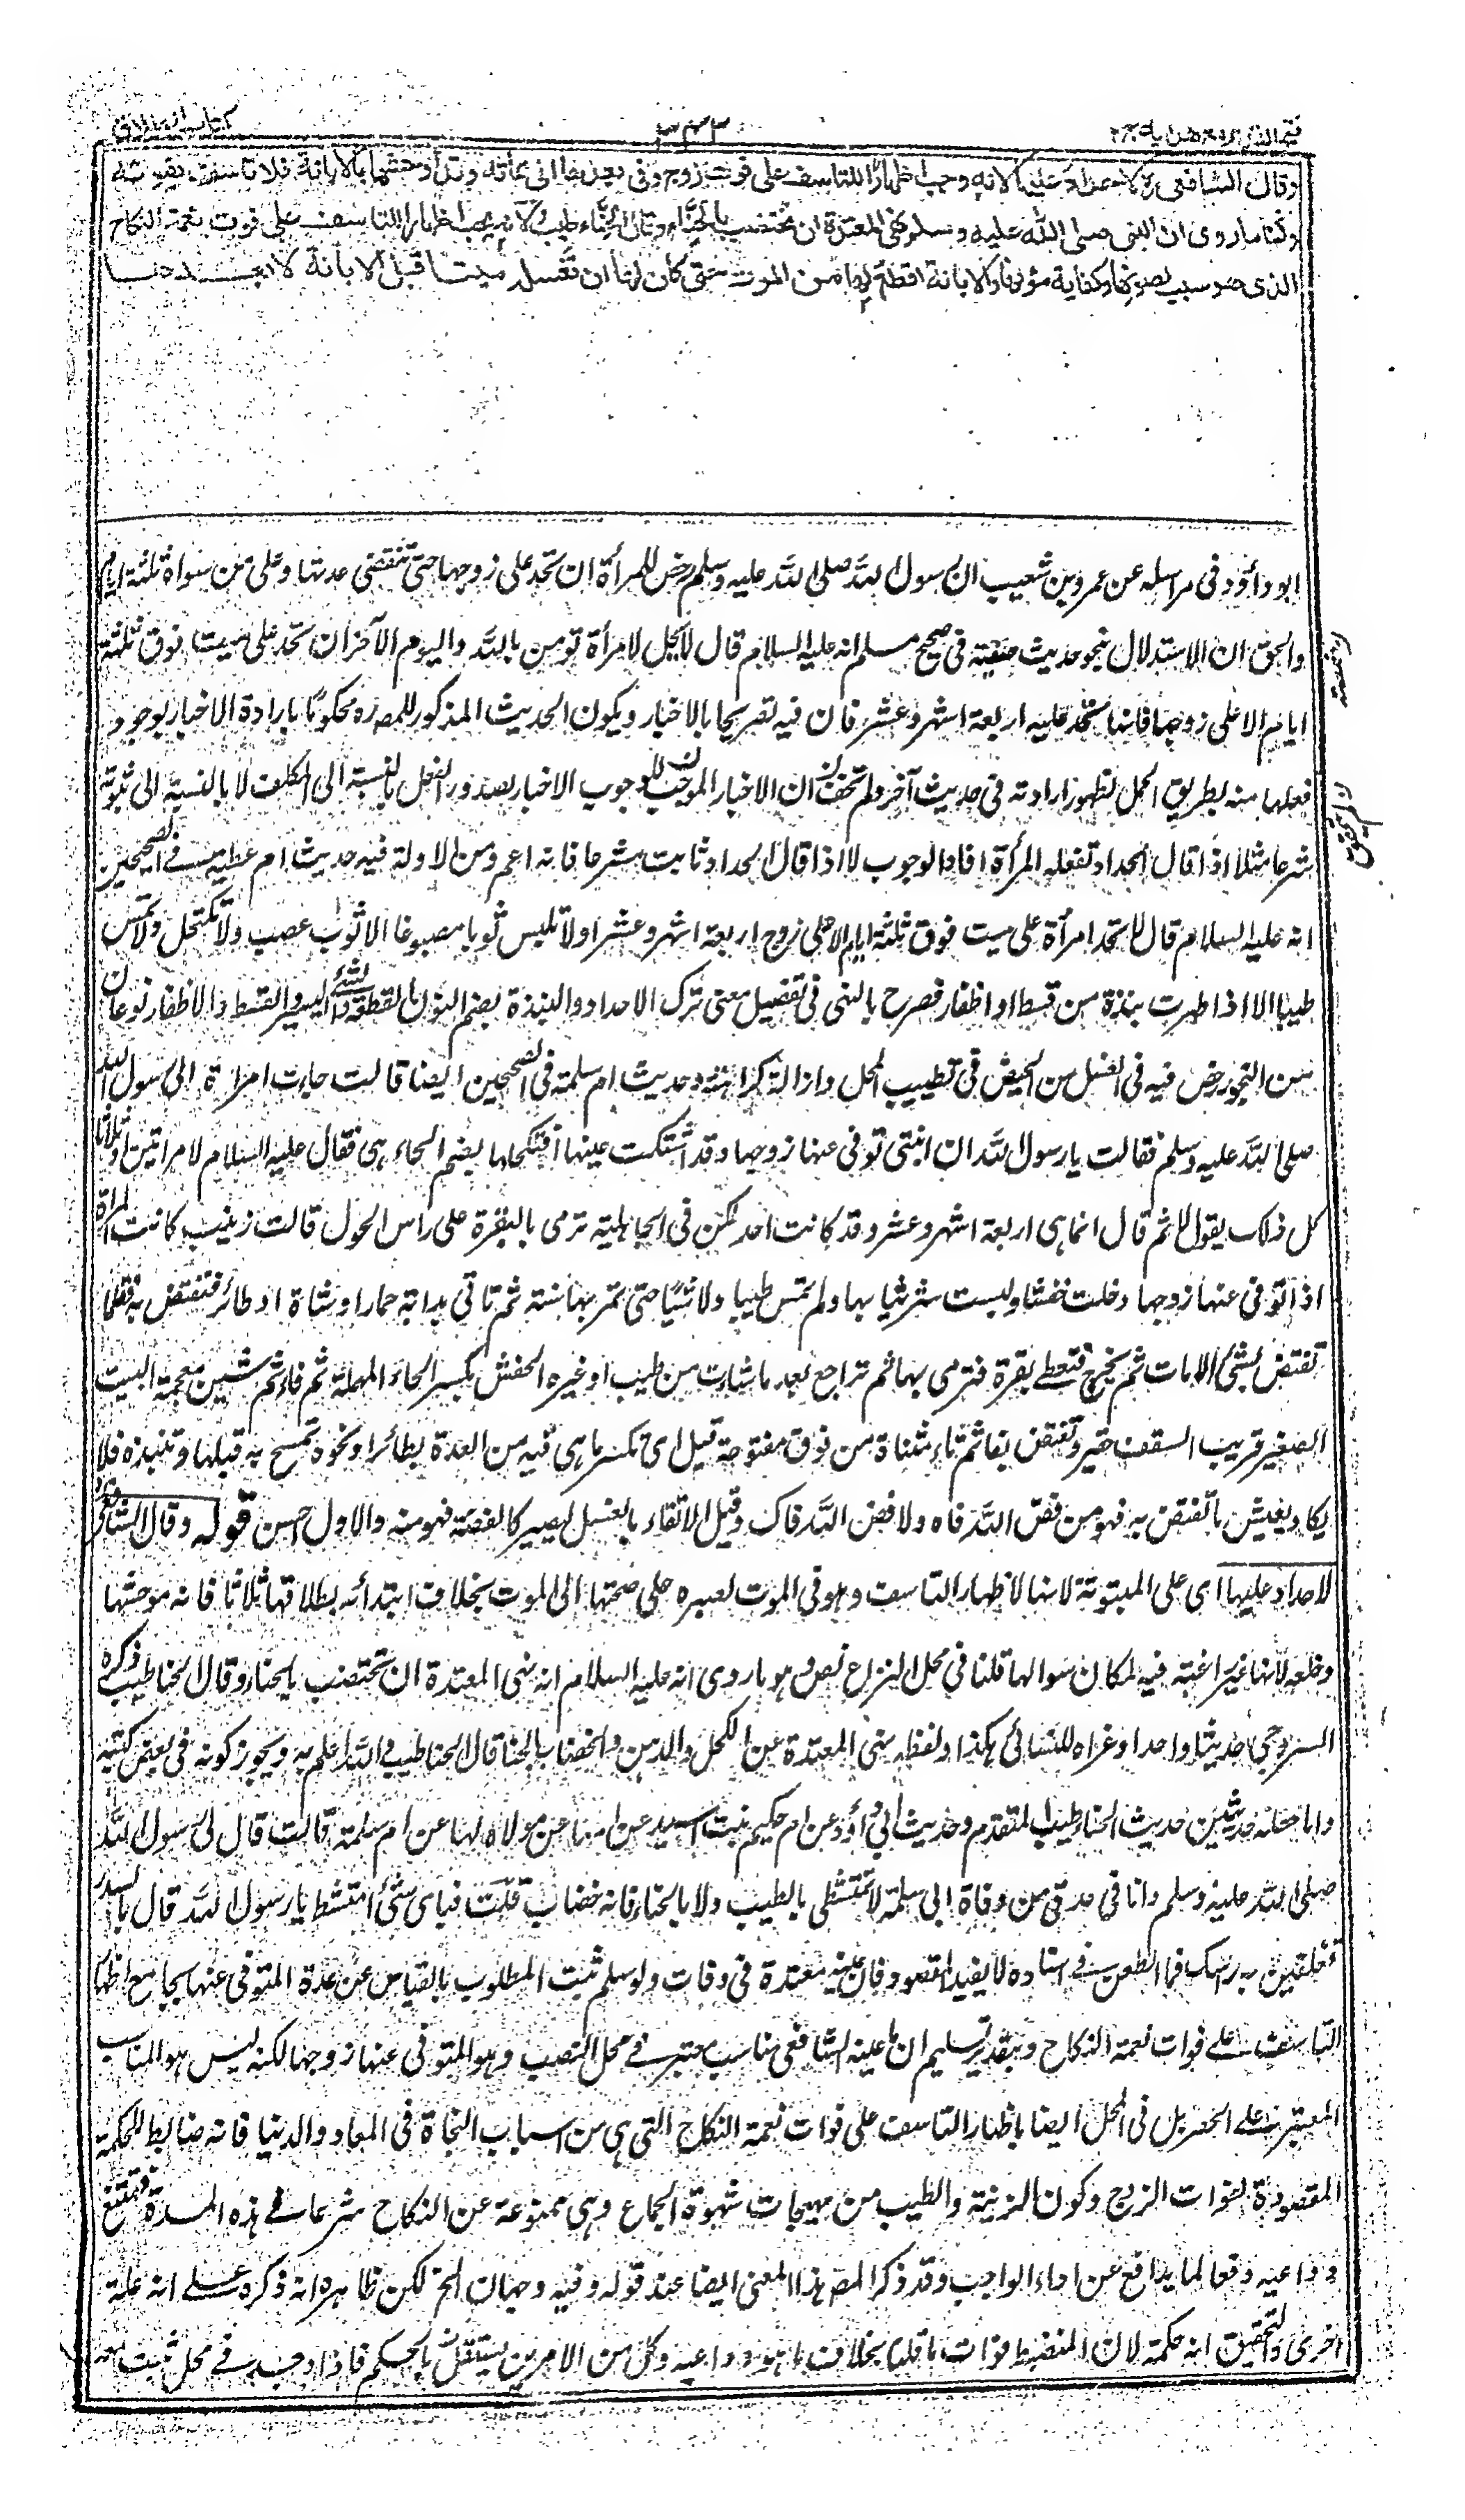 فتح القدير مع هدايه ج ٢
٣٤٣
كتاب الطلاق
وقال الشافعي رح لا حداد عليها لانه وجب اظهارا للتاسف على فوت زوج وفى بعهدها الى مماته وقد اوحشها بالابانة فلا تاسف بفوته
ولنا ما روى ان النبى صلى الله عليه وسلم نهى المعتدة ان تختضب بالحناء وقال الحناء طيب ولانه يجب اظهارا للتاسف على فوت نعمة النكاح
الذى هو سبب لصونها وكفاية مؤنها والابانة اقطع لها من الموت حتى كان لها ان تغسله ميتا قبل الابانة لا بعدها
ابو داؤد فى مراسله عن عمرو بن شعيب ان رسول الله صلى الله عليه وسلم رخص للمرأة ان تحد على زوجها حتى تنقضى عدتها وعلى من سواه ثلثة ايام
والحق ان الاستدلال بنحو حديث حفصة فى صحيح مسلم انه عليه السلام قال لا يحل لامرأة تومن بالله واليوم الآخر ان تحد على ميت فوق ثلثة
ايام الا على زوجها فانها تحد عليه اربعة اشهر وعشر فان فيه تصريحا بالاخبار ويكون الحديث المذكور للمصره محكوما بارادة الاخبار بوجود
فعلها منه بطريق الحمل لظهور ارادته فى حديث آخر ولم تخف ان الاخبار الموجب للوجوب الاخبار بصدور الفعل بالنسبة الى المكلف لا بالنسبة الى ثبوته
شرعا مثلا اذا قال الحداد تفعله المرأة افاد الوجوب لا اذا قال الحداد ثابت شرعا فانه اعم ومن الادلة فيه حديث ام عطية فى الصحيحين
انه عليه السلام قال لا تحد امرأة على ميت فوق ثلثة ايام الا على زوج اربعة اشهر وعشرا ولا تلبس ثوبا مصبوغا الا ثوب عصب ولا تكتحل ولا تمس
طيبا الا اذا طهرت نبذة من قسط او اظفار فصرح بالنهى فى تفصيل معنى ترك الاحداد والنبذة بضم النون القطعة والشئ اليسير والقسط والاظفار نوعان
من البخور رخص فيه فى الغسل من الحيض فى تطييب المحل وازالة كراهته وحديث ام سلمة فى الصحيحين ايضا قالت جاءت امرأة الى رسول الله
صلى الله عليه وسلم فقالت يا رسول الله ان ابنتى توفى عنها زوجها وقد اشتكت عينها أفنكحلها بضم الحاء هى فقال عليه السلام لا مرتين او ثلاثا
كل ذلك يقول لا ثم قال انما هى اربعة اشهر وعشر وقد كانت احدكن فى الجاهلية ترمى بالبعرة على راس الحول قالت زينب كانت المرأة
اذا توفى عنها زوجها دخلت حفشا ولبست شر ثيابها ولم تمس طيبا ولا شيئا حتى تمر بها سنة ثم تاتى بدابة حمار او شاة او طائر فتفتض به فقلما
تفتض بشئ الا مات ثم تخرج فتعطى بعرة فترمى بها ثم تراجع بعد ما شاءت من طيب او غيره الحفش بكسر الحاء المهملة ثم فاء ثم شين معجمة البيت
الصغير قريب السقف حقير وتفتض بفاء ثم تاء مثناة من فوق مفتوحة قيل اى تكسر ما هى فيه من العدة بطائر او نحوه تمسح به قبلها وتنبذه فلا
يكاد يعيش ما تفتض به فهو من فض الله فاه ولا فض الله فاك وقيل الانقاء بالغسل ليصير كالفضة فهو منه والاول احسن قوله وقال الشافعى رح
لا حداد عليها اى على المبتوتة لانها لاظهار التاسف وهو فى الموت لصبره على صحبتها الى الموت بخلاف ابتدائه بطلاقها ثلاثا فانه موحشها
وخلعه لانها غير راغبة فيه لمكان سوالها قلنا فى محل النزاع نص وهو ما روى انه عليه السلام انه نهى المعتدة ان تختضب بالحناء وقال الحناء طيب ذكره
السروجى حديثا واحدا وعزاه للنسائى هكذا ولفظه نهى المعتدة عن الكحل والدهن والخضاب بالحناء قال الحنا طيب فالله اعلم به ويجوز كونه فى بعض كتبه
واما جعله حديثين حديث الحناء طيب المتقدم وحديث ابى داؤد عن ام حكيم بنت اسيد عن امها عن مولاة لها عن ام سلمة قالت قال لى رسول الله
صلى الله عليه وسلم وانا فى عدتى من وفاة ابى سلمة لا تمتشطى بالطيب ولا بالحناء فانه خضاب قلت فباى شئ امتشط يا رسول الله قال بالسدر
تغلفين به رأسك فما الطعن فى اسناده لا يفيد المقصود فان هذه معتدة فى وفات ولو سلم ثبت المطلوب بالقياس عن عدة المتوفى عنها بجامع اظهار
التاسف على فوات نعمة النكاح وبتقدير تسليم ان ما عينه الشافعى مناسب معتبر فى محل النصب وهو المتوفى عنها زوجها لكنه ليس هو المناسب
المعتبر على الحصر بل فى المحل ايضا باظهار التاسف على فوات نعمة النكاح التى هى من اسباب النجاة فى المعاد والدنيا فانه ضابط للحكمة
المقصودة لفوات الزوج وكون الزينة والطيب من مهيجات شهوة الجماع وهى ممنوعة عن النكاح شرعا فى هذه المدة فتمتنع
دواعيه دفعا لما يدافع عن اداء الواجب وقد ذكر المص هذا المعنى ايضا عند قوله وفيه وجهان الخ لكن ظاهره انه ذكره على انه علة
اخرى والتحقيق انه حكمة لان المنضبط فوات ما قلنا بخلاف ما هو دواعيه وكل من الامرين يستقل بالحكم فاذا وجد فى محل ثبت معه